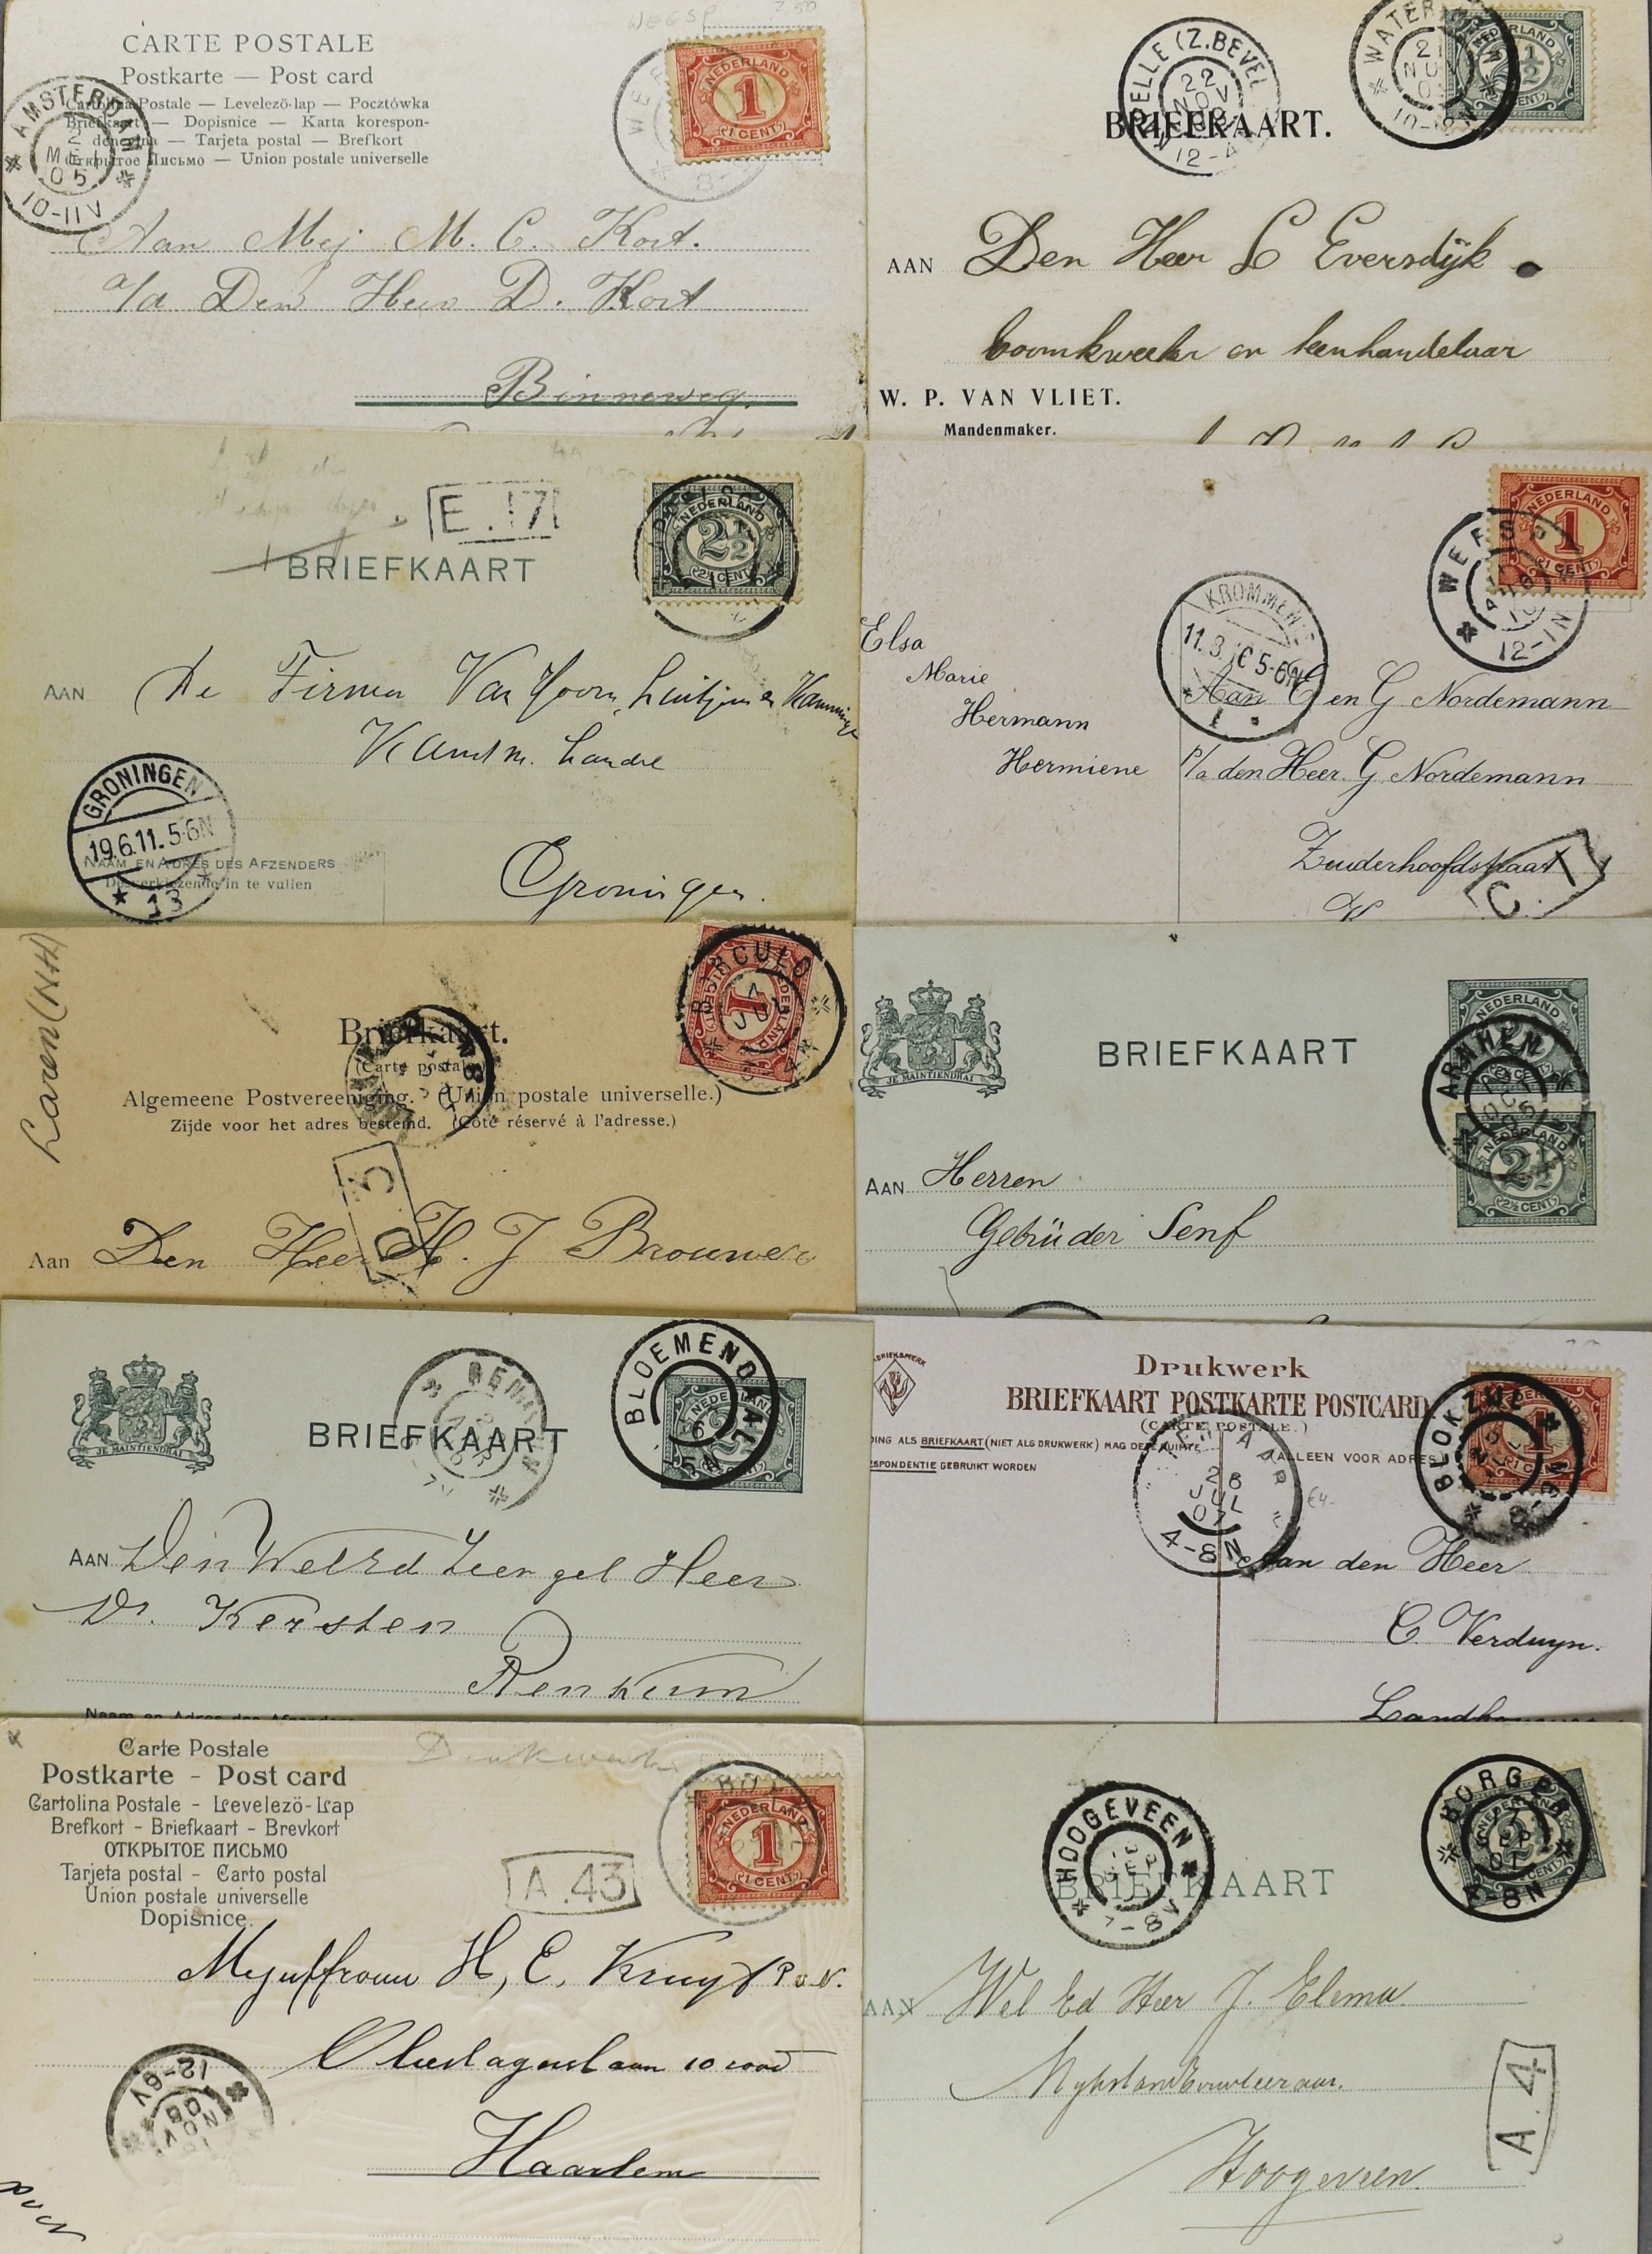 WEESP 7.50
CARTE POSTALE
Postkarte — Post card
Cartolina Postale — Levelező-lap — Pocztówka
Briefkaart — Dopisnice — Karta korespon-
dencyjna — Tarjeta postal — Brefkort
Открытое Письмо — Union postale universelle
AMSTERDAM
2
MEI
05
10-11V
NEDERLAND
1
(1 CENT)
8-
Aan Mej M. C. Kort.
p/a Den Heer D. Kort
Binneweg.
ELLE (Z.BEVEL
22
NOV
12-4
WATER
21
NOV
0
10-12N
NEDERLAND
2½
BRIEFKAART.
AAN Den Heer L Eversdijk
boomkweeker en
W. P. VAN VLIET.
Mandenmaker.
E.17
NEDERLAND
2½
(2½ CENT)
BRIEFKAART
AAN De Firma Van Hoorn, Luitjens &
Kamminga
Groningen.
GRONINGEN
19.6.11.5-6N
13
NAAM EN ADRES DES AFZENDERS
Desverkiezende in te vullen
NEDERLAND
1
(1 CENT)
WEESP
12-1N
KROMMENIE
11.8.10 5-6N
1
Elsa
Marie
Hermann
Hermiene
Aan E en G Nordemann
p/a den Heer. G Nordemann
Zuiderhoofdstraat
C.
Laren (NH)
BORCULO
JUL
NEDERLAND
1
Briefkaart.
(Carte postale)
Algemeene Postvereeniging. (Union postale universelle.)
Zijde voor het adres bestemd. (Côté réservé à l'adresse.)
C 5
Aan Den Heer H. J Brouwer
JE MAINTIENDRAI
BRIEFKAART
NEDERLAND
ARNHEM
OCT
NEDERLAND
2½
(2½ CENT)
AAN Herren
Gebrüder Senf
JE MAINTIENDRAI
BRIEFKAART
RENKUM
BLOEMENDAAL
5N
NEDERLAND
AAN Den WelEd Zeer gel Heer
Dr. Kersten
Renkum
Naam en Adres des Afzenders
FABRIEKSMERK
Drukwerk
BRIEFKAART POSTKARTE POSTCARD
(CARTE POSTALE.)
DING ALS BRIEFKAART (NIET ALS DRUKWERK) MAG DEZE RUIMTE
ESPONDENTIE GEBRUIKT WORDEN
ALLEEN VOOR ADRES
BLOKZIJL
1
26
JUL
07
4-8N
€4-
Aan den Heer
C. Verduyn.
Carte Postale
Postkarte - Post card
Cartolina Postale - Levelező-Lap
Brefkort - Briefkaart - Brevkort
ОТКРЫТОЕ ПИСЬМО
Tarjeta postal - Carto postal
Union postale universelle
Dopisnice.
Drukwerk
NEDERLAND
1
(1 CENT)
A.43
Mejuffrouw H, E, Kruyf P.v.N.
Olieslagerslaan 10 rood
Haarlem
12-6V
NOV
08
HOOGEVEEN
SEP
7-8V
BORGER
SEP
07
-8N
NEDERLAND
BRIEFKAART
AAN Wel Ed Heer J. Elema
Rykslandbouwleeraar.
Hoogeveen.
A.4